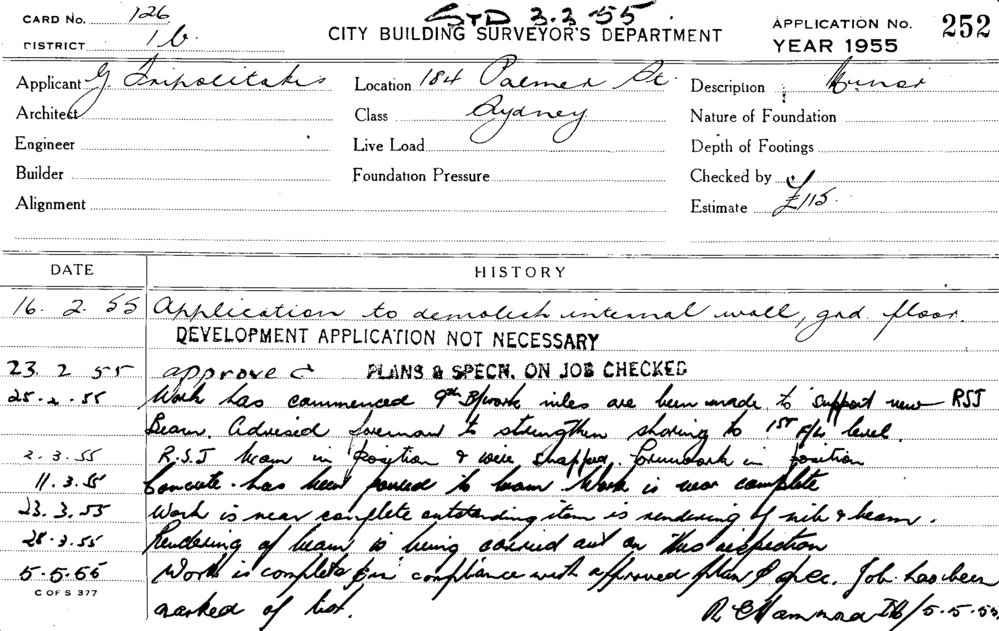 CARD No. 126
DISTRICT 1b.
STD 3.3.55.
CITY BUILDING SURVEYOR'S DEPARTMENT
APPLICATION No. 252
YEAR 1955
Applicant G Tripolitakis
Location 184 Palmer St.
Description Minor
Architect
Class Sydney
Nature of Foundation
Engineer
Live Load
Depth of Footings
Builder
Foundation Pressure
Checked by
Alignment
Estimate £115.
DATE HISTORY
16. 2. 55 Application to demolish internal wall, grd. floor.
DEVELOPMENT APPLICATION NOT NECESSARY
23 2 55 approved PLANS & SPECN. ON JOB CHECKED
25.2.55 Work has commenced 9in B/work nibs are been made to support new RSJ
Beam. Advised foreman to strengthen shoring to 1st F/L level.
2.3.55 R.S.J beam in position & wire wrapped. formwork in position
11.3.55 Concrete has been poured to beam Work is near complete
23.3.55 Work is near complete outstanding item is rendering of nib & beam.
28.3.55 Rendering of beam is being carried out on this inspection
5-5.55 Work is complete & in compliance with approved plan & spec. Job has been
C OF S 377
marked of list. R C Hammond 5.5.55.